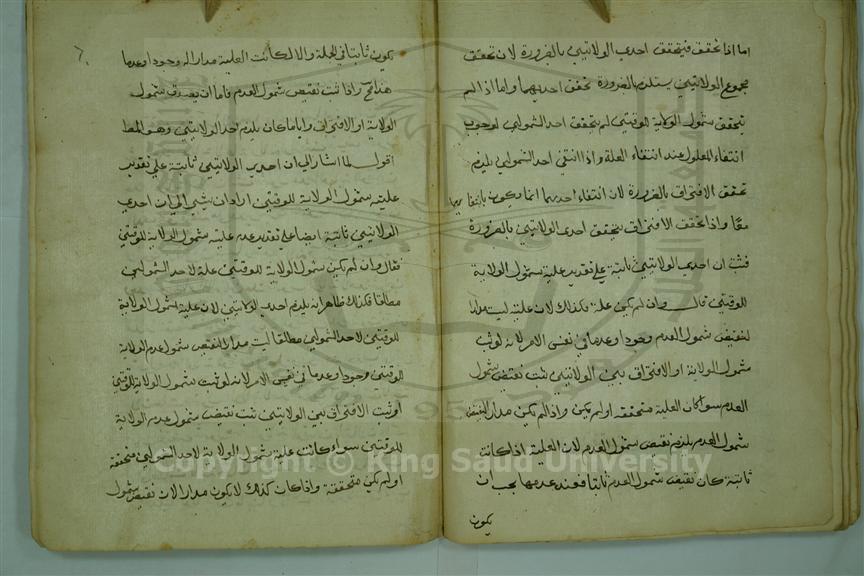 اما اذا تحقق فيتحقق احدى الولايتين بالضرورة لان تحقق
مجموع الولايتين يستلزم بالضرورة تحقق احديهما واما اذا لم
يتحقق شمول الولاية للوقتين لم يتحقق احد الشمولين لوجوب
انتفاء المعلول عند انتفاء العلة واذا انتفى احد الشمولين يلزم
تحقق الافتراق بالضرورة لان انتفاء احديهما انما يكون
معا واذا تحقق الافتراق يتحقق احدى الولايتين بالضرورة
فثبت ان احدى الولايتين ثابتة على تقدير علية شمول الولاية
للوقتين قال وان لم يكن علة فكذلك لان علية ليست مدارا
لنقيض شمول العدم وجودا وعدما في نفس الامر لانه لو ثبت
شمول الولاية او الافتراق بين الولايتين ثبت نقيض شمول
العدم سوا كان العلية متحققة او لم يكن واذا لم يكن مدارا لنقيض
شمول العدم يلزم نقيض شمول العدم لان العلية اذا كانت
ثابتة كان نقيض شمول العدم ثابتا فعند عدمها يجب ان
يكون
يكون ثابتا في الجملة والا لكانت العلية مدارا له وجودا وعدما
هذا مح واذا ثبت نقيض شمول العدم فاما ان يصدق شمول
الولاية او الافتراق واياما كان يلزم احد الولايتين وهو المط
اقول لما اشار الى ان احدى الولايتين ثابتة على تقدير
علية شمول الولاية للوقتين اراد ان يشير الى ان احدى
الولايتين ثابتة ايضا على تقدير عدم علية شمول الولاية للوقتين
فقال وان لم يكن شمول الولاية للوقتين علة لاحد الشمولين
مطلقا فكذلك ظاهر انه يلزم احدى الولايتين لان علية شمول الولاية
للوقتين لاحد الشمولين مطلقا ليست مدارا لنقيض شمول عدم الولاية
للوقتين وجودا وعدما في نفس الامر لانه لو ثبت شمول الولاية للوقتين
او ثبت الافتراق بين الولايتين ثبت نقيض شمول عدم الولاية
للوقتين سواء كانت علية شمول الولاية لاحد الشمولين متحققة
او لم يكن متحققة واذا كان كذلك لا يكون مدارا لان نقيض شمول
Copyright © King Saud University